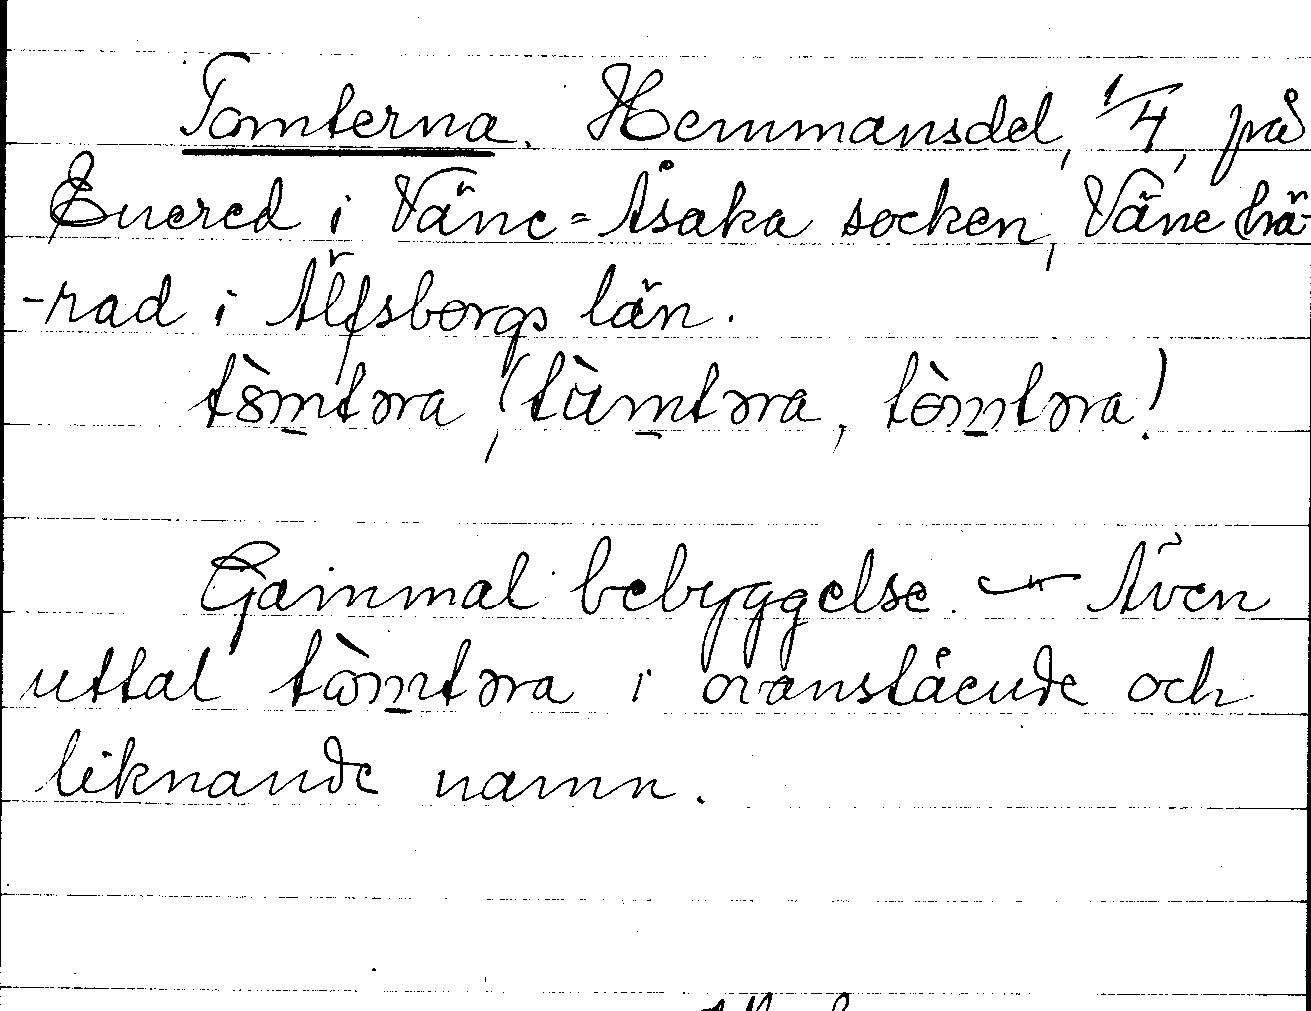 Tomterna. Hemmansdel, 1/4, på
Enered i Väne=Åsaka socken, Väne hä-
-rad i Älfsborgs län.
tòmtəra, (tùmtəra, tòmtəra!
Gammal bebyggelse. — Även
uttal tòmtəra i ovanstående och
liknande namn.